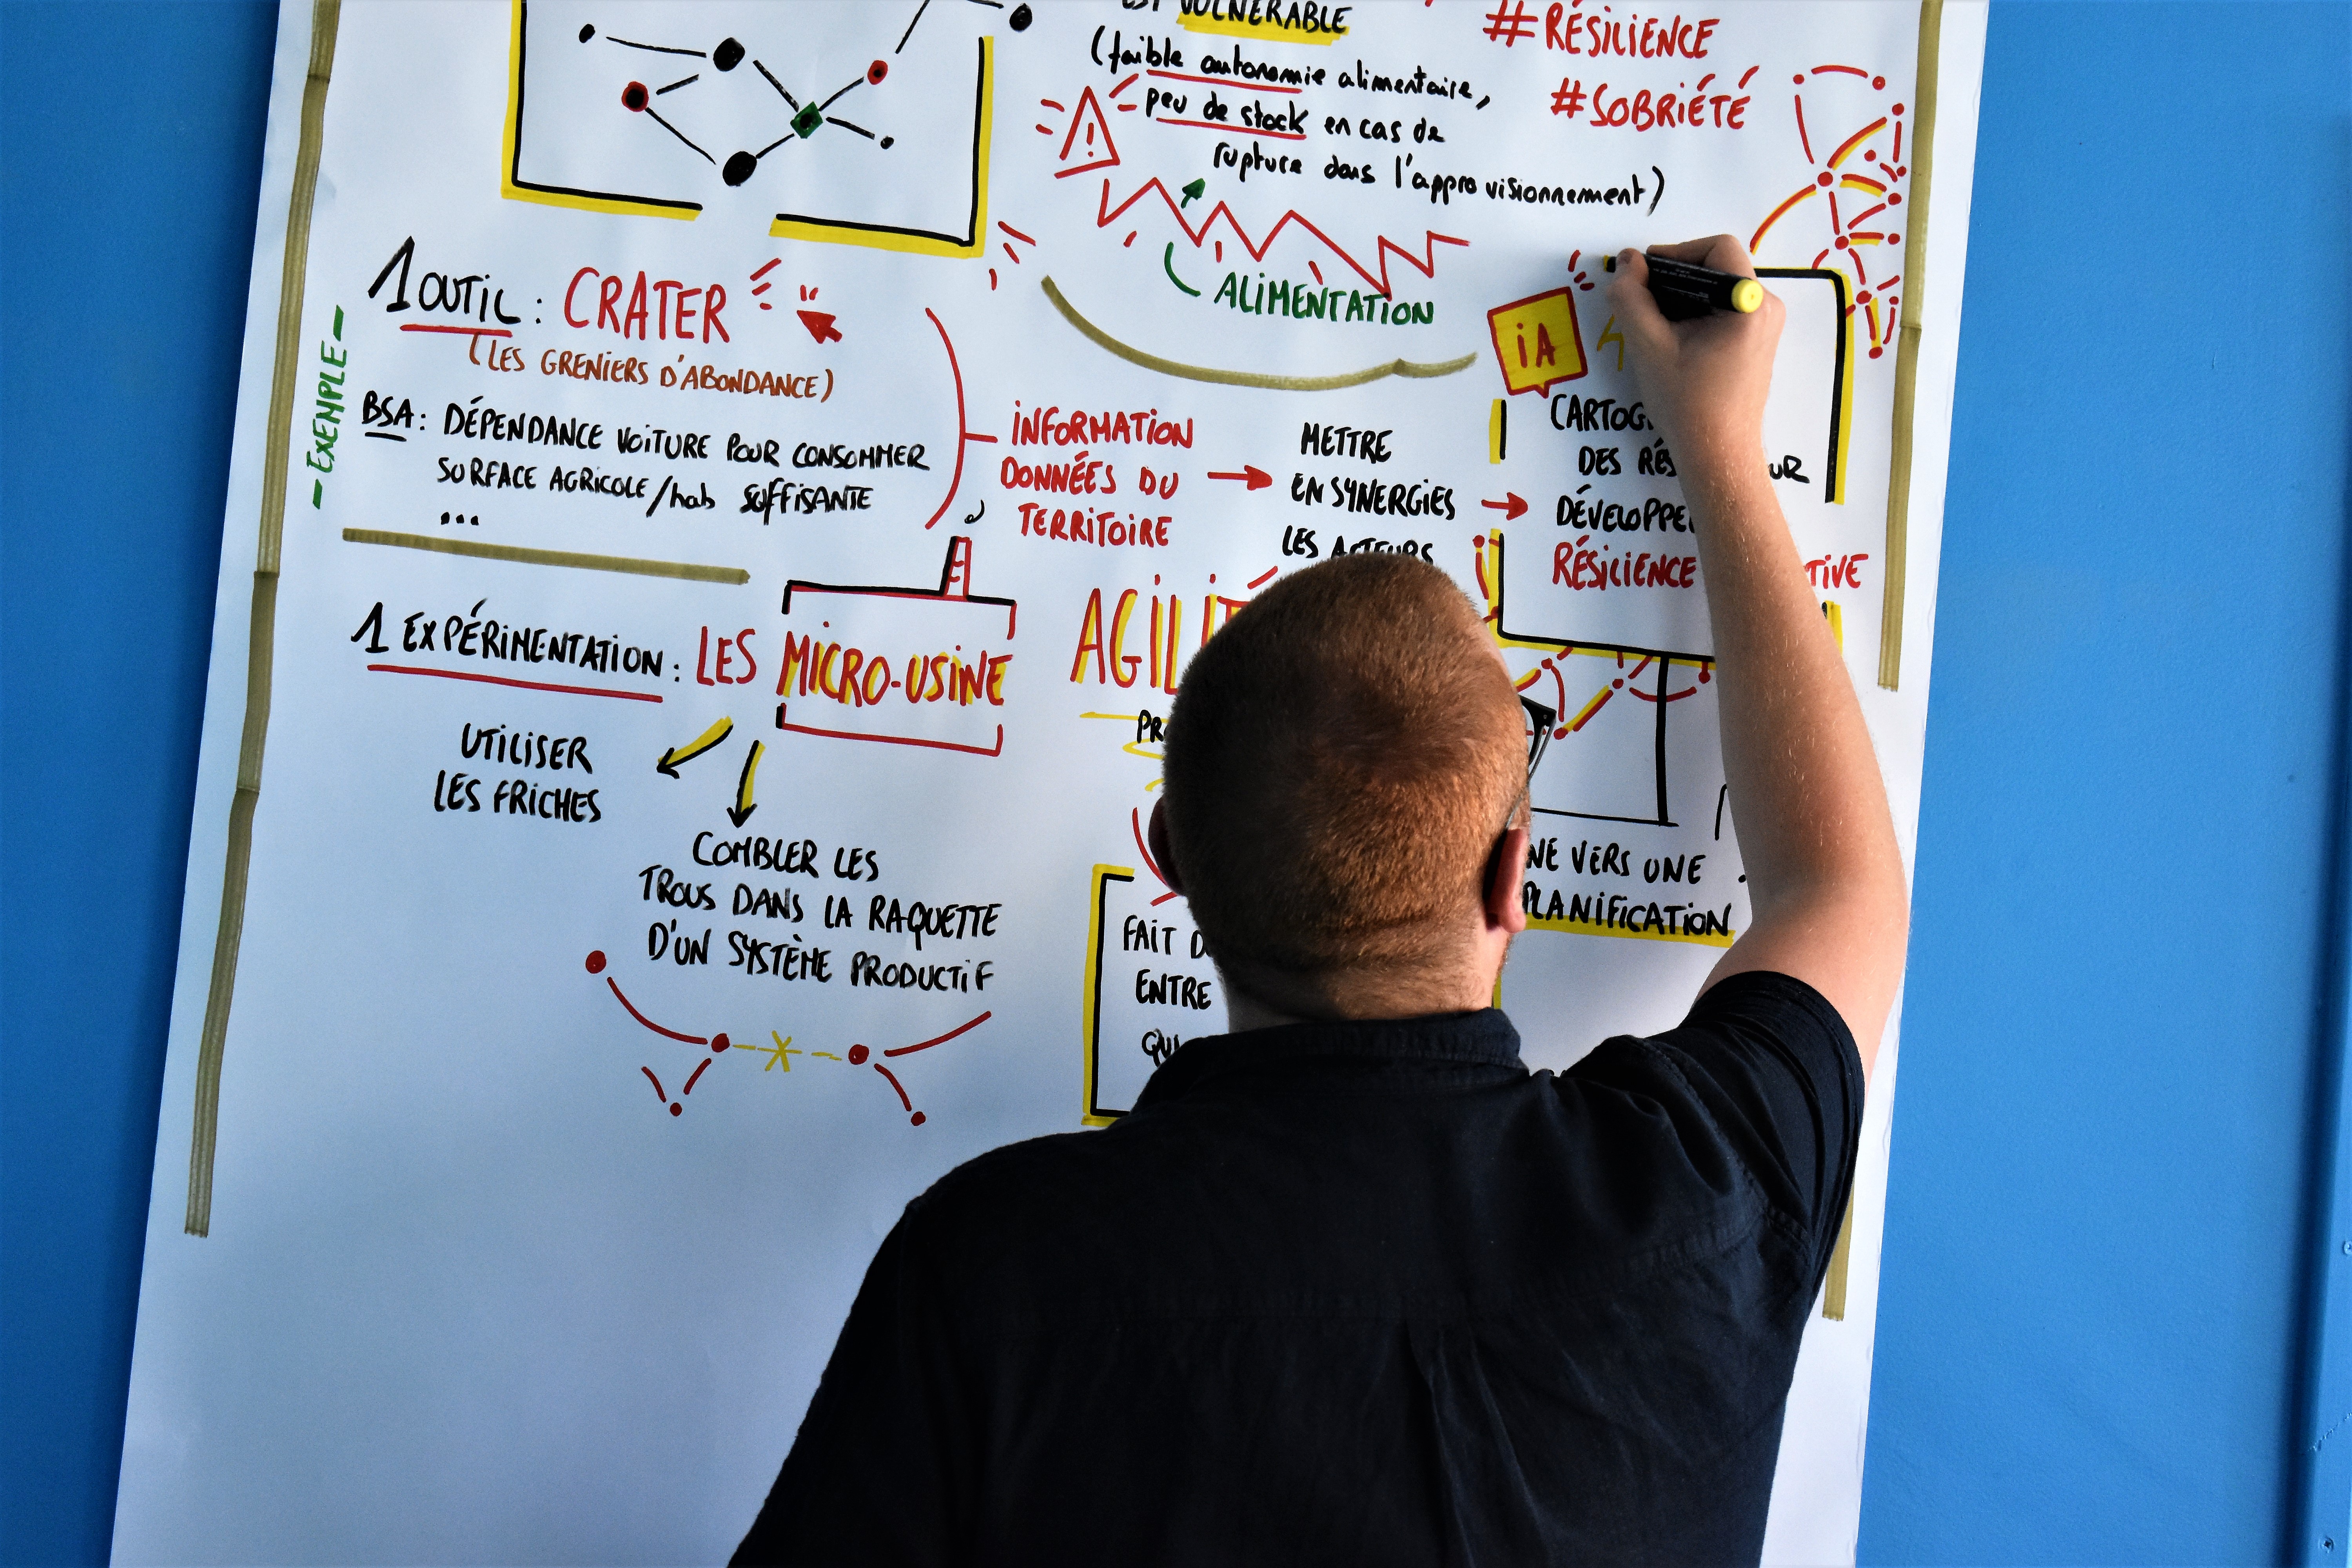 EST VULNERABLE
(faible autonomie alimentaire,
peu de stock en cas de
rupture dans l'approvisionnement)
#RÉSILIENCE
#SOBRIÉTÉ
ALIMENTATION
- EXEMPLE -
1 OUTIL : CRATER
(LES GRENIERS D'ABONDANCE)
BSA : DÉPENDANCE VOITURE POUR CONSOMMER
SURFACE AGRICOLE/hab SUFFISANTE
...
INFORMATION
DONNÉES DU
TERRITOIRE
METTRE
EN SYNERGIES
LES ACTEURS
iA
DES
RÉSILIENCE
1 EXPÉRIMENTATION : LES MICRO-USINE
UTILISER
LES FRICHES
COMBLER LES
TROUS DANS LA RAQUETTE
D'UN SYSTÈME PRODUCTIF
FAIT
ENTRE
VERS UNE
PLANIFICATION